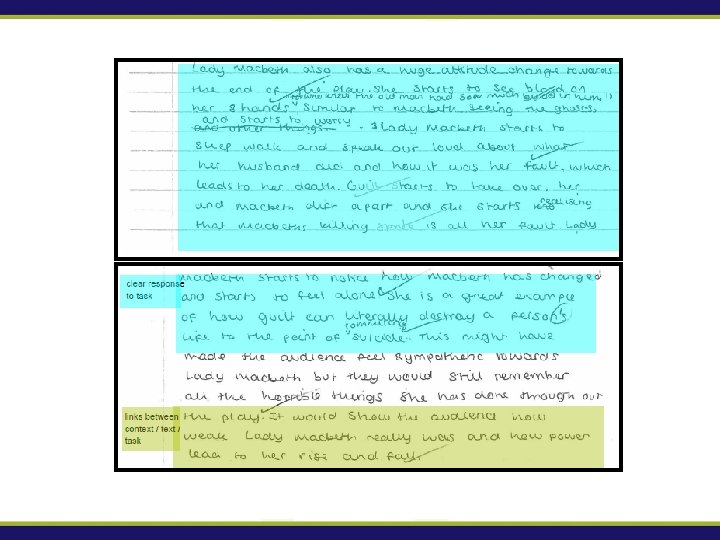 Lady Macbeth also has a huge attitude change towards
the end of the play. She starts to see blood on
who knew the old man had so much blood in him
her hands similar to Macbeth seeing the ghosts,
and starts to worry
and other things. Lady Macbeth starts to
sleep walk and speak out loud about what
her husband did and how it was her fault, which
leads to her death. Guilt starts to take over, her
and macbeth drift apart and she starts realising
that macbeths killing spree is all her fault Lady
clear response
to task
macbeth starts to notice how macbeth has changed
and starts to feel alone. She is a great example
of how guilt can literally destroy a person's
committing
life to the point of suicide. This might have
made the audience feel sympathetic towards
Lady macbeth but they would still remember
all the horrible things she has done through out
links between
context / text /
task
the play. It would show the audience how
weak Lady macbeth really was and how power
lead to her rise and fall.